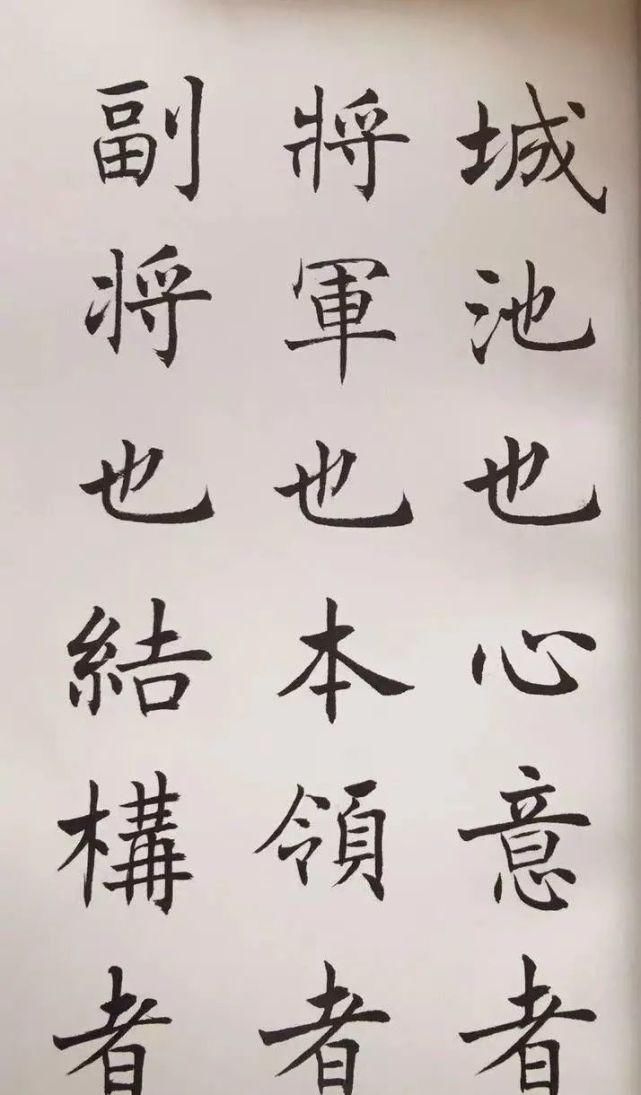 城池也心意者
將軍也本領者
副将也結構者